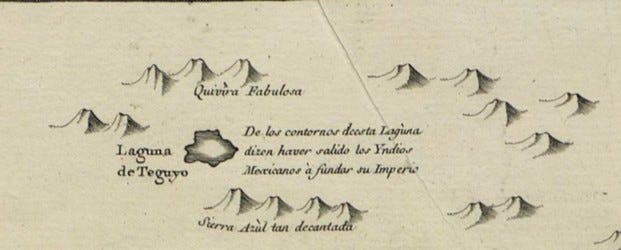 Quivìra Fabulosa
De los contornos deesta Lagùna
dizen haver salido los Yndios
Mexicanos à fundar su Imperio
Laguna
de Teguyo
Sierra Azùl tan decantada